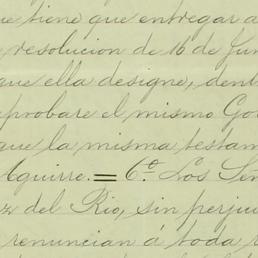 ue tiene que entregar a
resolucion de 16 de Jun
que ella designe, dent
aprobare el mismo Go
que la misma testam
Aguirre. = 6º Los Señ
z del Rio, sin perju
renuncian á toda